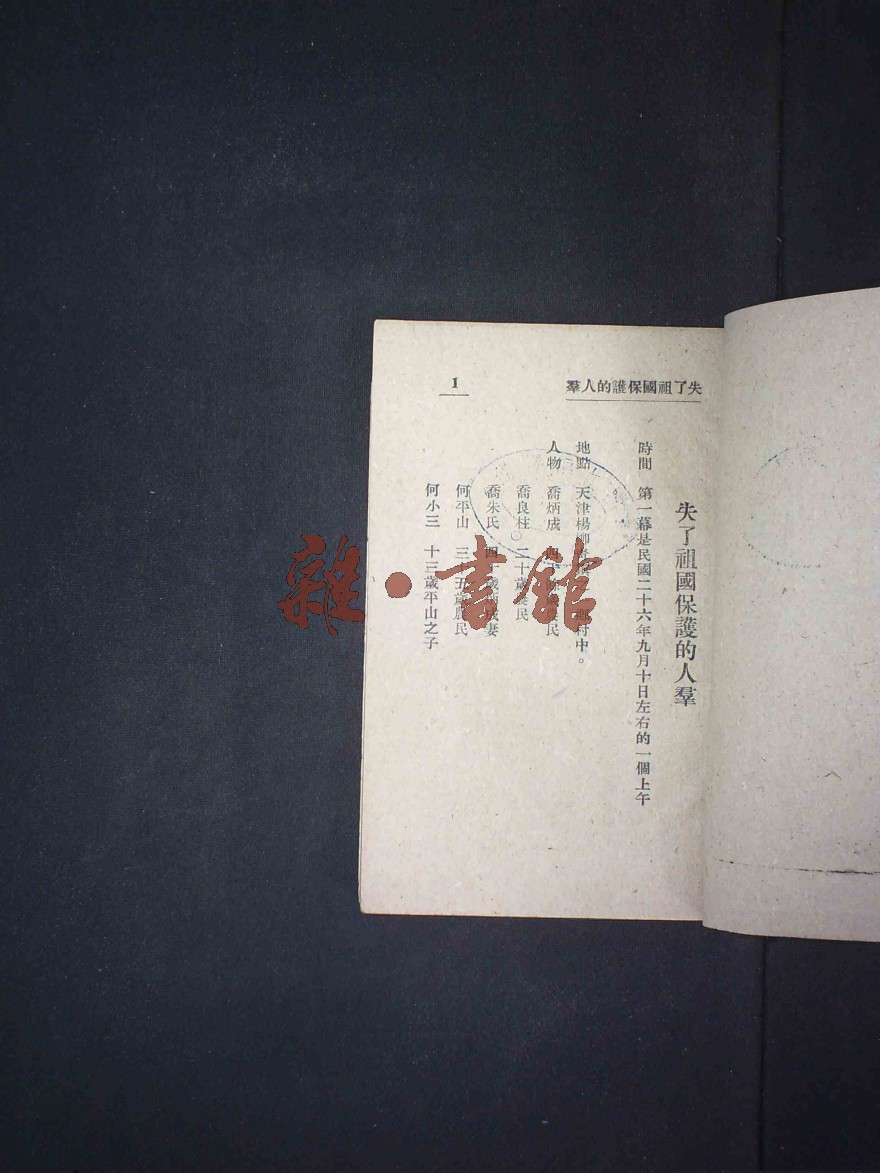 失了祖國保護的人羣
1
失了祖國保護的人羣
時間 第一幕是民國二十六年九月十日左右的一個上午
地點 天津楊柳 村中。
人物 喬炳成 四十 歲農民
喬良柱 二十歲農民
喬朱氏 四十 歲炳成妻
何平山 三十五歲農民
何小三 十三歲平山之子
雜·書館